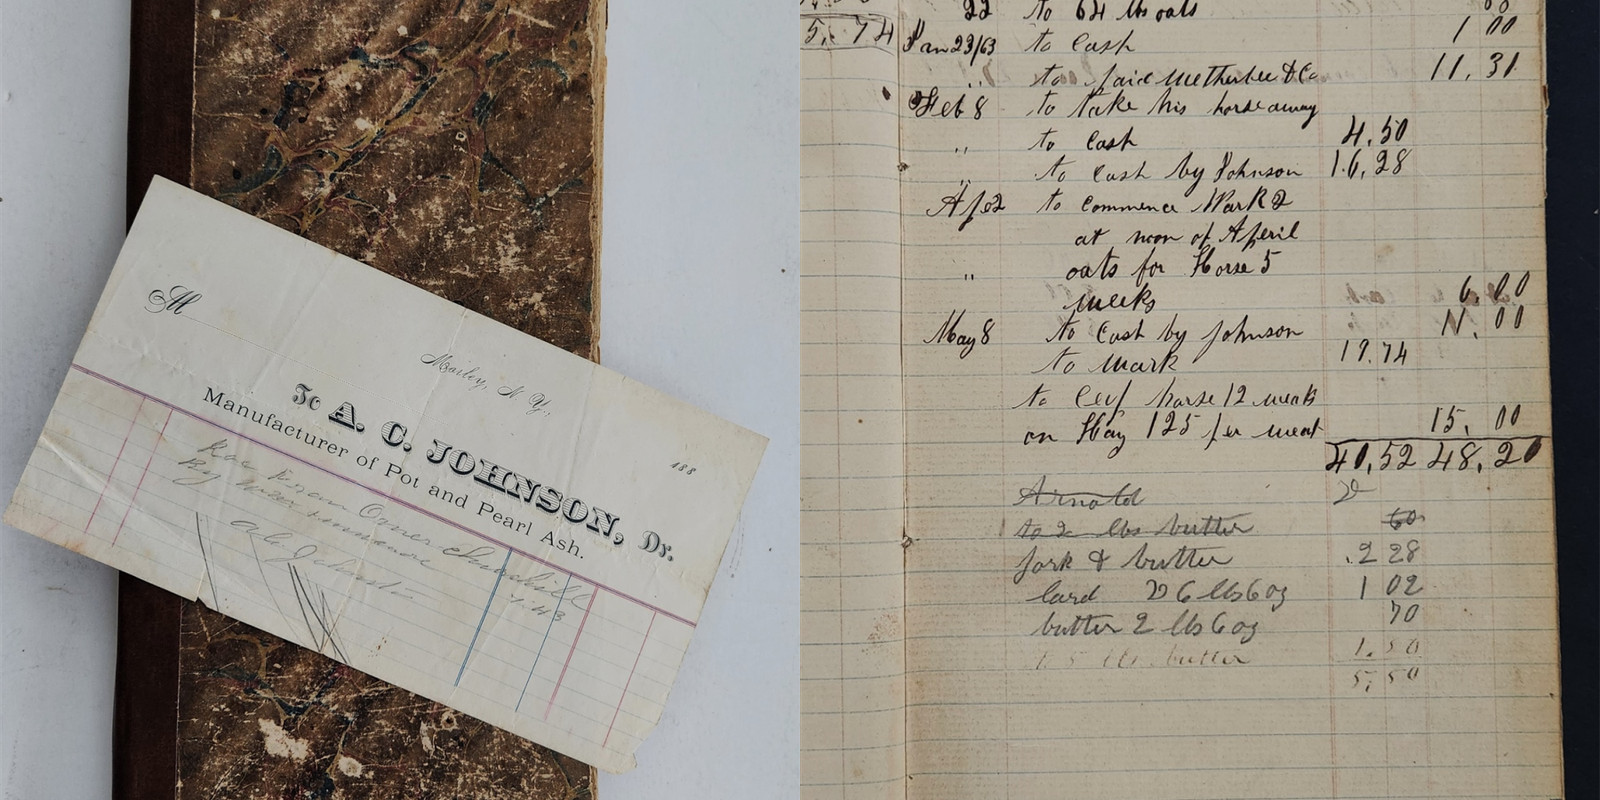 M
Morley, N. Y.,
188
To A. C. JOHNSON, Dr.
Manufacturer of Pot and Pearl Ash.
Rec From Omer Churchill
By
7.43
5,74
22 to 64 lbs oats
Jan 23/63 to Cash 1 00
" to paid Wetherbee & Co 11.31
Feb 8 to take his horse away
" to Cash 4.50
" to Cash by Johnson 16,28
Ap 2 to Commence Work 2
at noon of Aperil
" oats for Horse 5
weeks 6.00
May 8 to Cash by Johnson 11.00
to Mark 19.74
to horse 12 weeks
on Hay 125 per week 15,00
40,52 48,20
Arnold
to 2 lbs butter 60
pork & butter .2 28
lard 6 lbs 6 oz 1 02
butter 2 lbs 6 oz 70
5 lbs butter 1.50
5,50